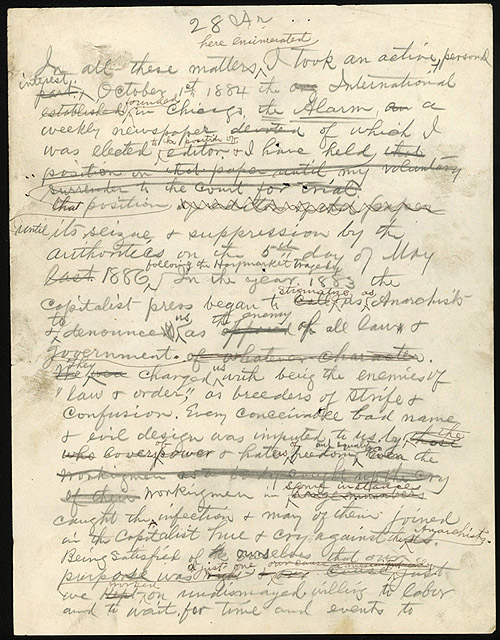 28
here enumerated
In all these matters I took an active, personal
interest. October 1st 1884 the International
established founded in Chicago, the Alarm, a
weekly newspaper devoted of which I
was elected to the position of editor & I have held that
position on that paper until my voluntary
surrender to the Court for trial
that position
until its seizure & suppression by the
authorities on the 5th day of May
last 1886 following the Haymarket tragedy. In the year 1883 the
capitalist press began to stigmatize us as Anarchists
& to denounce us as the enemy of all law &
government. of whatever character.
They charged us with being the enemies of
"law & order," as breeders of strife &
confusion. Every conceivable bad name
& evil design was imputed to us by the
who love power & hate freedom & equality. Even the
workingmen
of their workingmen in some instances
caught the infection & many of them joined
in the Capitalist hue & cry against Anarchists.
Being satisfied of ourselves that our
purpose was a just one
we worked on undismayed willing to labor
and to wait for time and events to